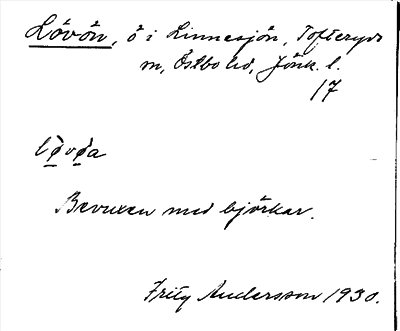 Lövön, ö i Linnesjön, Tofteryds
sn, Östbo hd, Jönk. l.
17
Bevuxen med björkar.
Fritz Andersson 1930.